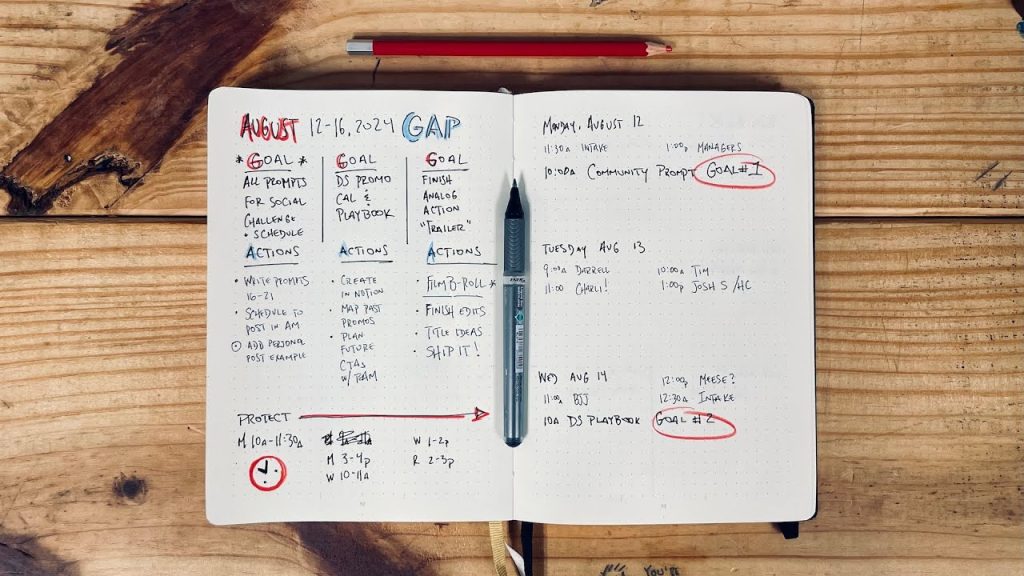 AUGUST 12-16, 2024 GAP
* GOAL *
ALL PROMPTS
FOR SOCIAL
CHALLENGE
+ SCHEDULE
ACTIONS
• WRITE PROMPTS
16-21
• SCHEDULE TO
POST IN AM
ADD PERSONAL
POST EXAMPLE
GOAL
DS PROMO
CAL &
PLAYBOOK
ACTIONS
• CREATE
IN NOTION
• MAP PAST
PROMOS
• PLAN
FUTURE
CTAS
W/ TEAM
GOAL
FINISH
ANALOG
ACTION
"TRAILER"
ACTIONS
• FILM B-ROLL *
• FINISH EDITS
• TITLE IDEAS
• SHIP IT!
PROTECT
M 10A-11:30A
M 3-4P
W 10-11A
W 1-2P
R 2-3P
MONDAY, AUGUST 12
11:30A INTAKE 1:00P MANAGERS
10:00A COMMUNITY PROMPT GOAL #1
TUESDAY AUG 13
9:00A DARRELL 10:00A TIM
11:00 CHARLI! 1:00P JOSH S/HC
WED AUG 14 12:00P MEESE?
11:00A BJJ 12:30A INTAKE
10A DS PLAYBOOK GOAL #2
YOU'RE